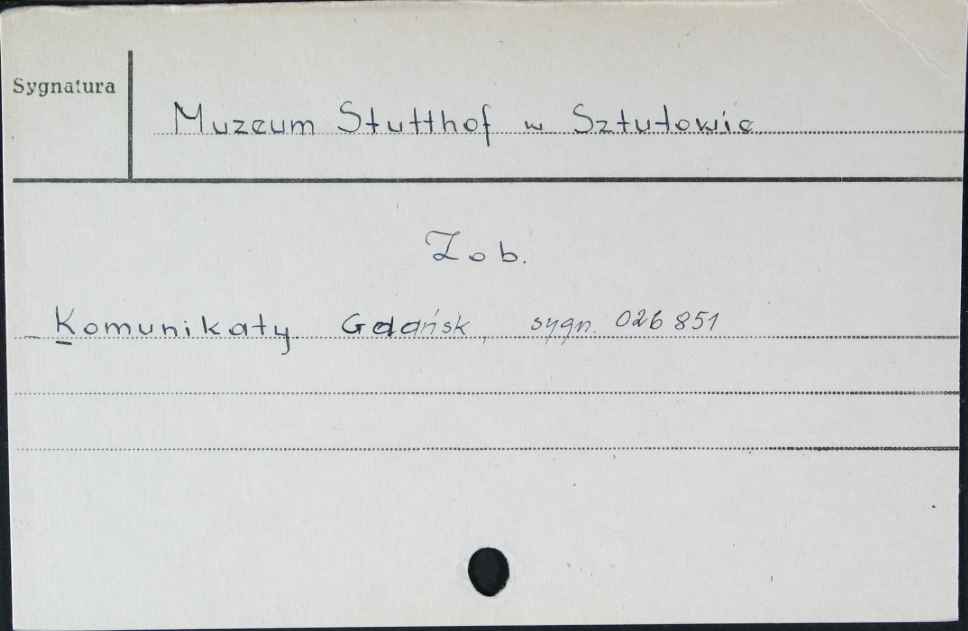 Sygnatura
Muzeum Stutthof w Sztutowie
Zob.
Komunikaty Gdańsk, sygn. 026851